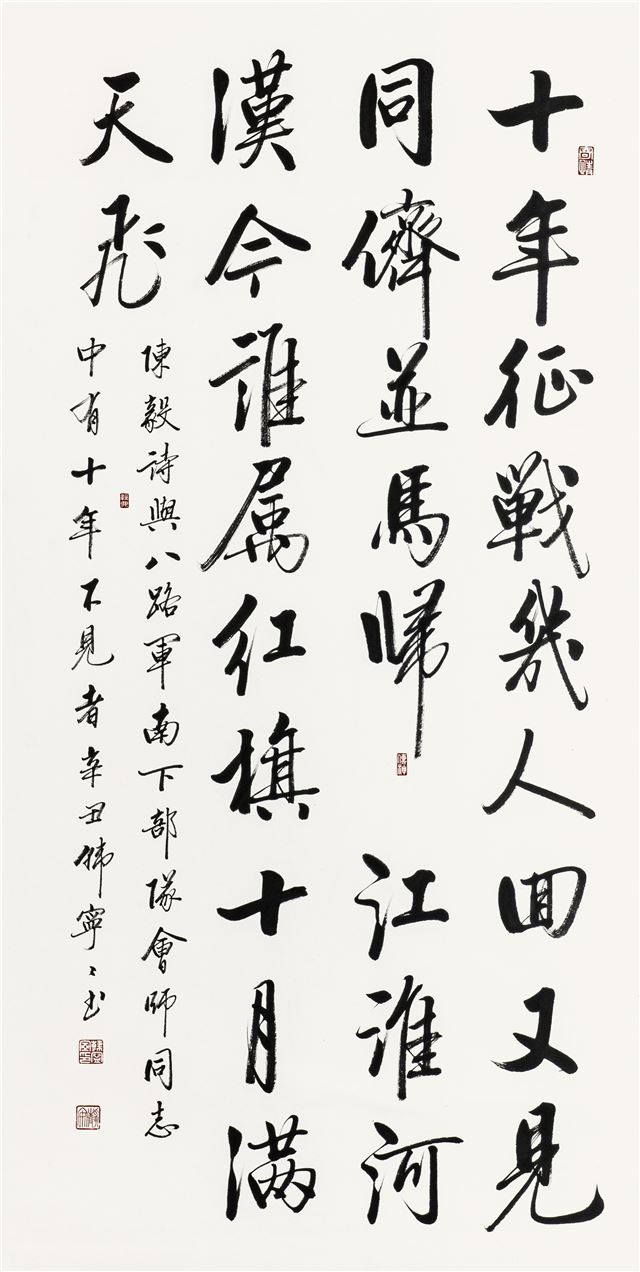 十年征戰幾人囬又見
同儕並馬歸 江淮河
漢今誰属红旗十月满
天飛
陳毅詩與八路軍南下部隊會師同志
中有十年不見者辛丑韩寧〻书